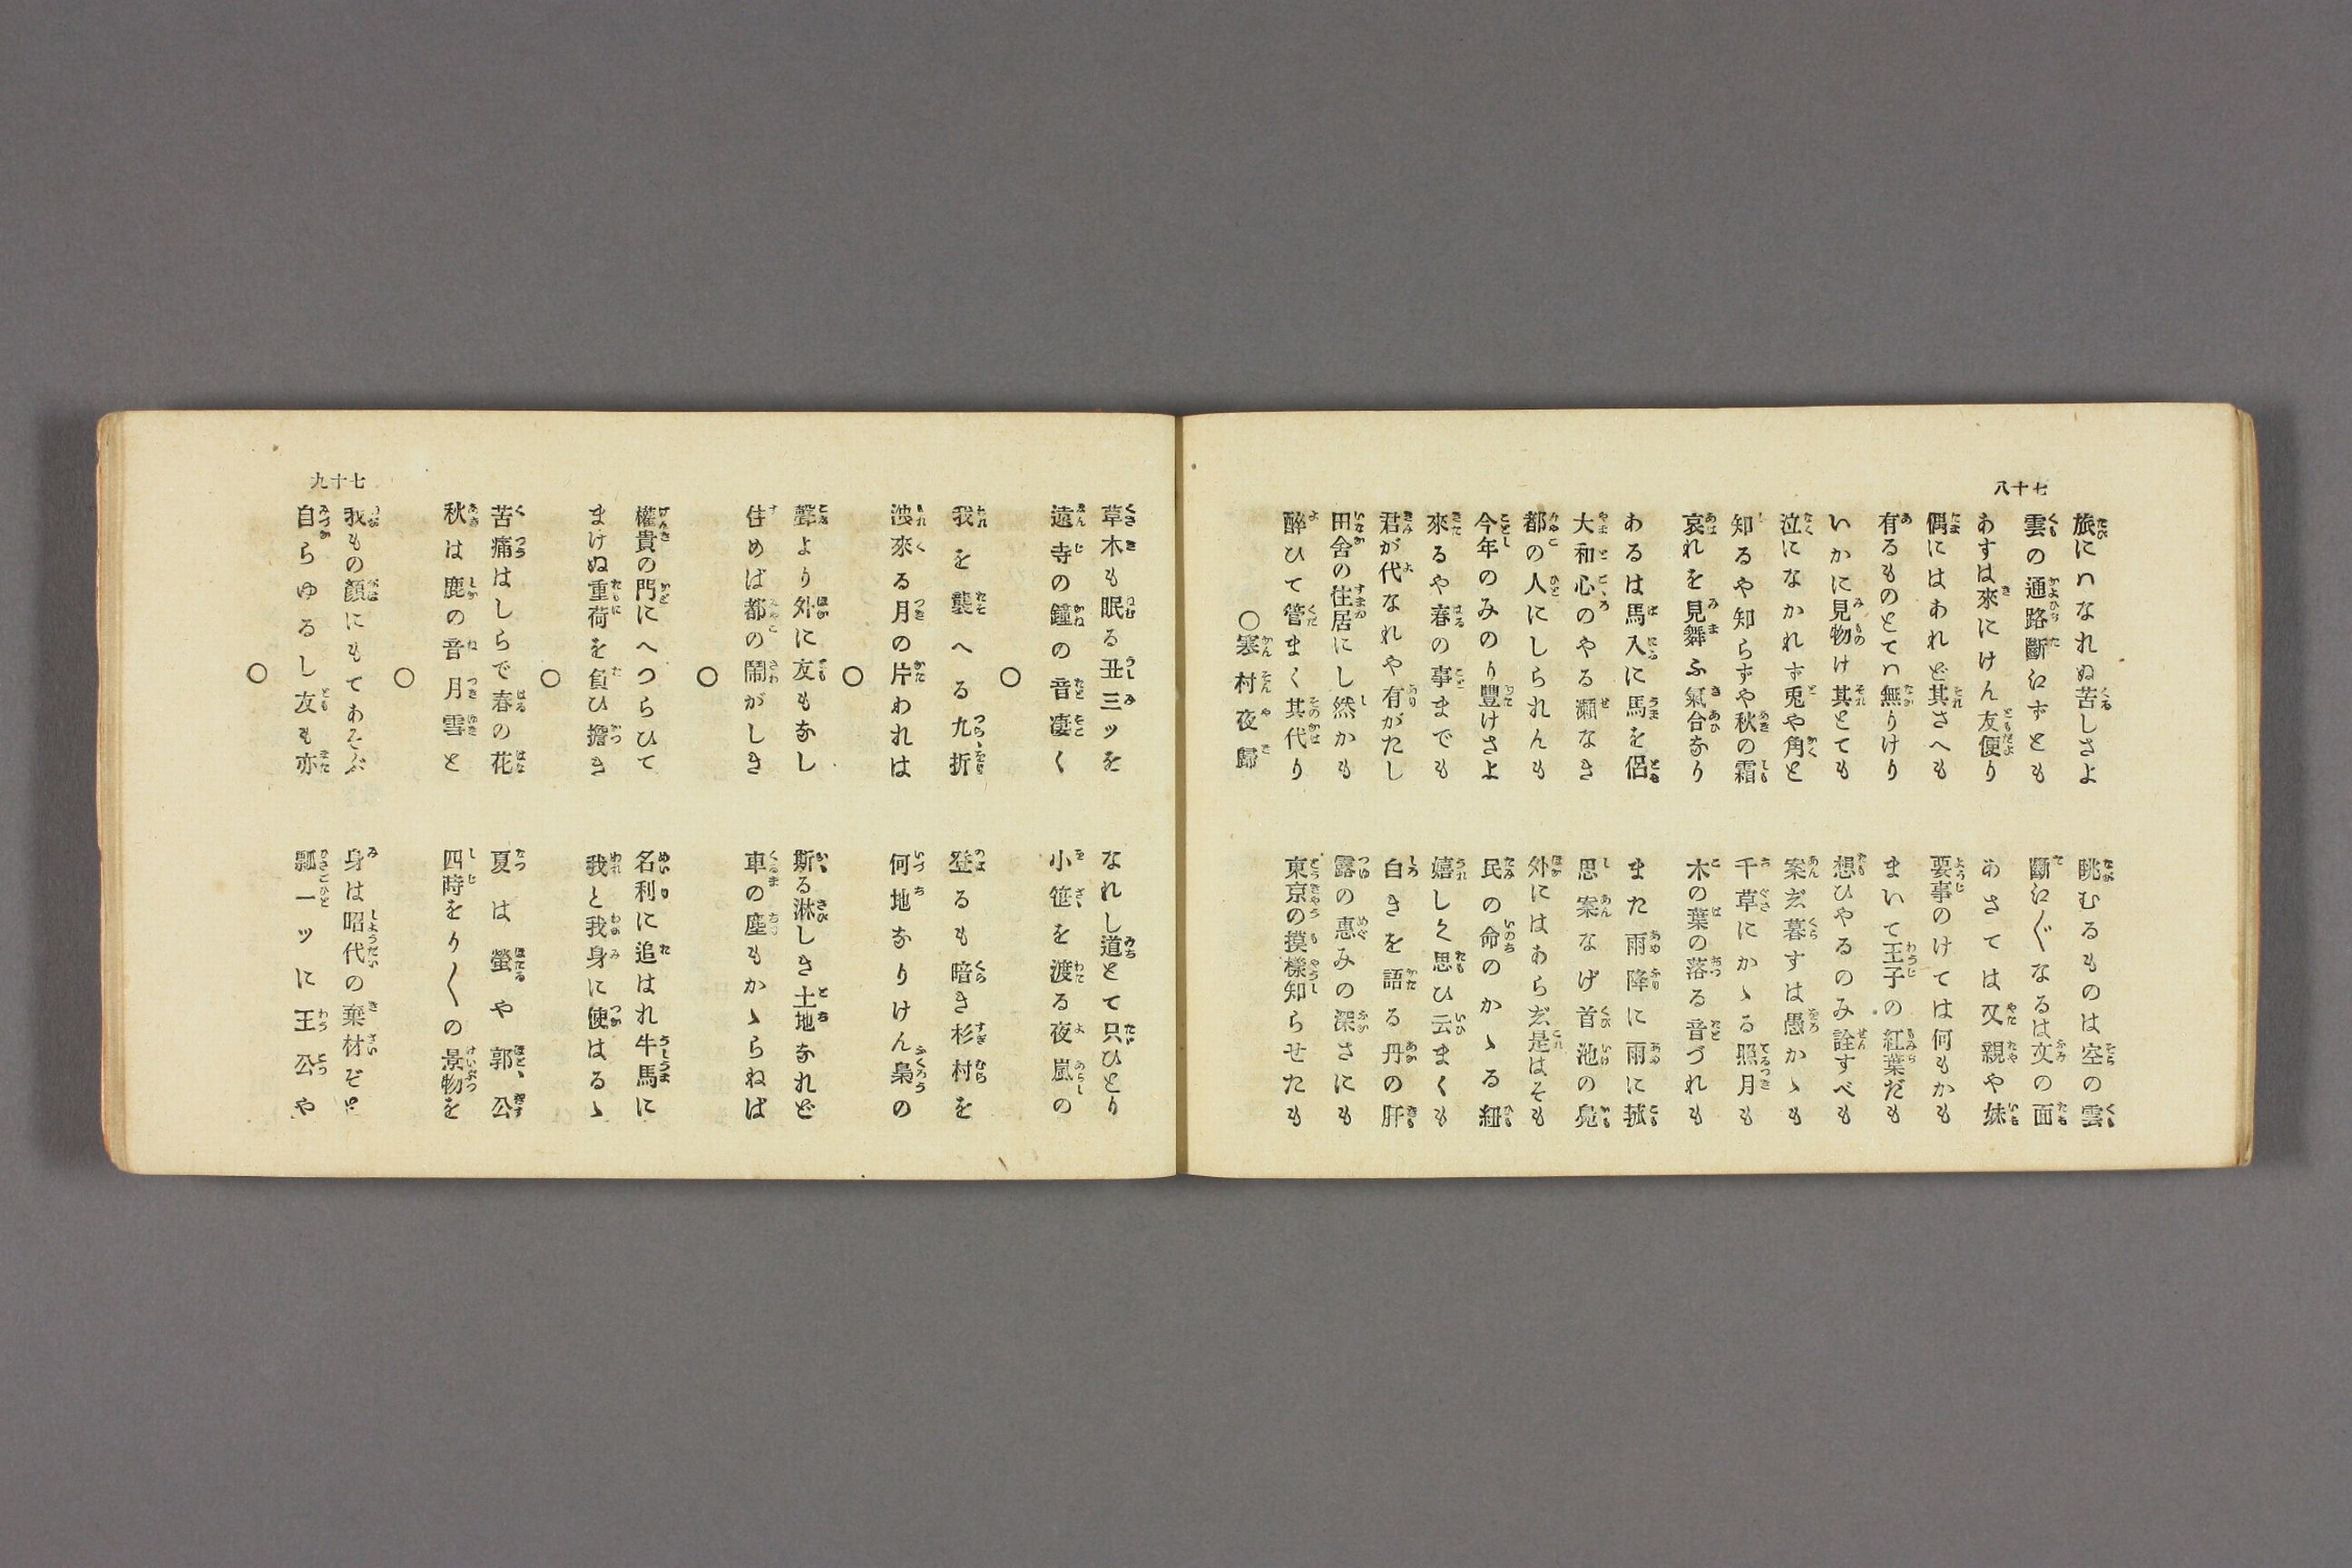 七十八
旅にハなれぬ苦しさよ　眺むるものは空の雲
雲の通路斷江ずとも　斷江〴〵なるは文の面
あすは來にけん友便り　あさては又親や妹
偶にはあれど其さへも　要事のけては何もかも
有るものとてハ無りけり　まいて王子の紅葉だも
いかに見物け其とても　想ひやるのみ詮すべも
泣になかれず兎や角と　案ガ暮すは愚かゝも
知るや知らずや秋の霜　千草にかゝる照月も
哀れを見舞ふ氣合なり　木の葉の落る音づれも
あるは馬入に馬を侶　また雨降に雨に菰
大和心のやる瀬なき　思案なげ首池の鳧
都の人にしられんも　外にはあらガ是はそも
今年のみのり豐けさよ　民の命のかゝる紐
來るや春の事までも　嬉しく思ひ云まくも
君が代なれや有がたし　白きを語る丹の肝
田舍の住居にし然かも　露の惠みの深さにも
醉ひて管まく其代り　東京の摸樣知らせたも
○寒村夜歸
草木も眠る丑三ッを　なれし道とて只ひとり
遠寺の鐘の音凄く　小笹を渡る夜嵐の
○
我を襲へる九折　登るも暗き杉村を
洩來る月の片われは　何地なりけん梟の
○
聲より外に友もなし　斯る淋しき土地なれど
住めば都の閙がしき　車の塵もかゝらねば
○
權貴の門にへつらひて　名利に追はれ牛馬に
まけぬ重荷を負ひ擔き　我と我身に使はるゝ
○
苦痛はしらで春の花　夏は螢や郭公
秋は鹿の音月雪と　四時をり〳〵の景物を
○
七十九
我もの顏にもてあそぶ　身は昭代の棄材ぞと
自らゆるし友も亦　瓢一ッに王公や
○